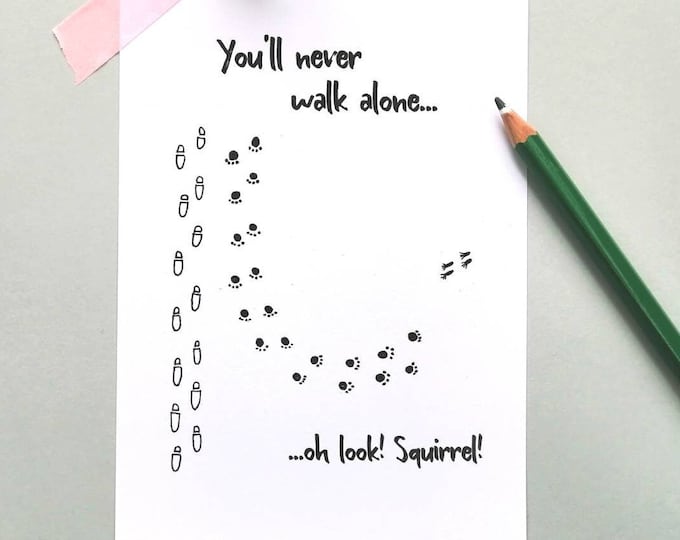 You'll never
walk alone...
...oh look! Squirrel!